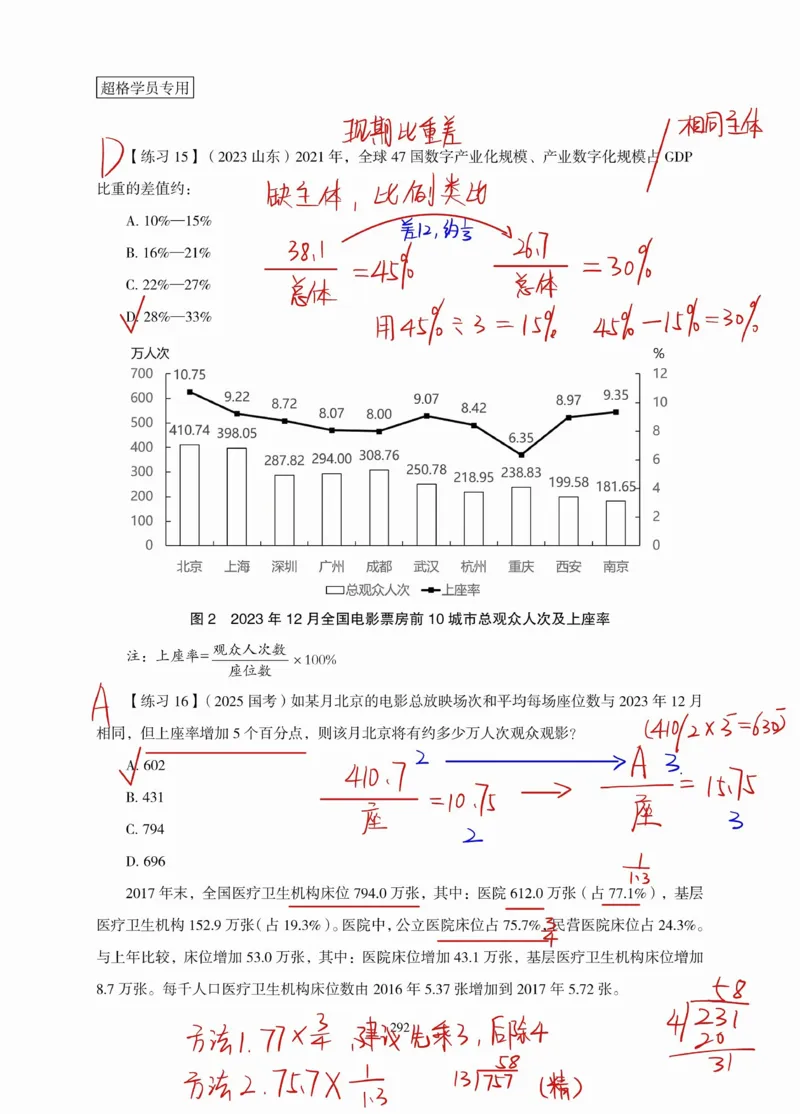 超格学员专用
现期比重差
相同主体
D【练习 15】（2023 山东）2021 年，全球 47 国数字产业化规模、产业数字化规模占 GDP
比重的差值约：
缺主体，比例类比
A. 10%—15%
差12,约1/3
B. 16%—21%
38.1/总体=45% 26.7/总体=30%
C. 22%—27%
D. 28%—33%
用45%÷3=15% 45%-15%=30%
万人次 %
700 10.75 12
600 9.22 8.72 8.07 8.00 9.07 8.42 8.97 9.35 10
500 410.74 398.05 6.35 8
400 287.82 294.00 308.76 250.78 218.95 238.83
300 199.58 181.65 6
200 4
100 2
0 0
北京 上海 深圳 广州 成都 武汉 杭州 重庆 西安 南京
总观众人次 上座率
图 2 2023 年 12 月全国电影票房前 10 城市总观众人次及上座率
注：上座率=观众人次数/座位数×100%
A【练习 16】（2025 国考）如某月北京的电影总放映场次和平均每场座位数与 2023 年 12 月
相同，但上座率增加 5 个百分点，则该月北京将有约多少万人次观众观影？
(410/2×3=630)
A. 602
2 3
410.7/座=10.75 → A/座=15.75
2 3
B. 431
C. 794
D. 696
1/1.3
2017 年末，全国医疗卫生机构床位 794.0 万张，其中：医院 612.0 万张（占 77.1%），基层
医疗卫生机构 152.9 万张（占 19.3%）。医院中，公立医院床位占 75.7%，民营医院床位占 24.3%。
3/4
与上年比较，床位增加 53.0 万张，其中：医院床位增加 43.1 万张，基层医疗卫生机构床位增加
8.7 万张。每千人口医疗卫生机构床位数由 2016 年 5.37 张增加到 2017 年 5.72 张。
292
方法1.77×3/4，建议先乘3，后除4
58
4/231
20
31
方法2.75.7×1/1.3
58
13/757（精）